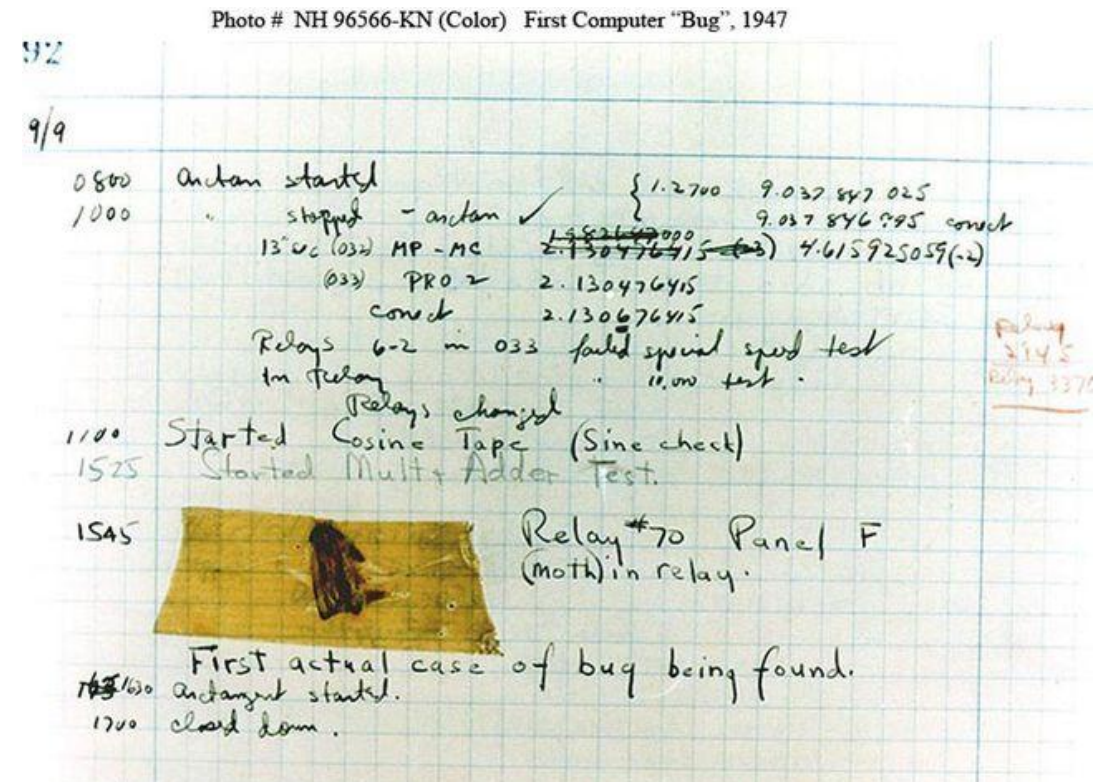 Photo # NH 96566-KN (Color) First Computer “Bug”, 1947
92
9/9
0800 arctan started { 1.2700 9.037 847 025
1000 " stopped - arctan ✓ 9.037 846 995 correct
13"uc (032) MP - MC 2.130476415 (-3) 4.615925059(-2)
(033) PRO 2 2.130476415
correct 2.130676415
Relays 6-2 in 033 failed special speed test
In Relay " 11,000 test .
Relays changed
Relay
2145
Relay 3370
1100 Started Cosine Tape (Sine check)
1525 Started Mult + Adder Test.
1545 Relay #70 Panel F
(moth) in relay.
First actual case of bug being found.
1630 arctangent started.
1700 closed down.